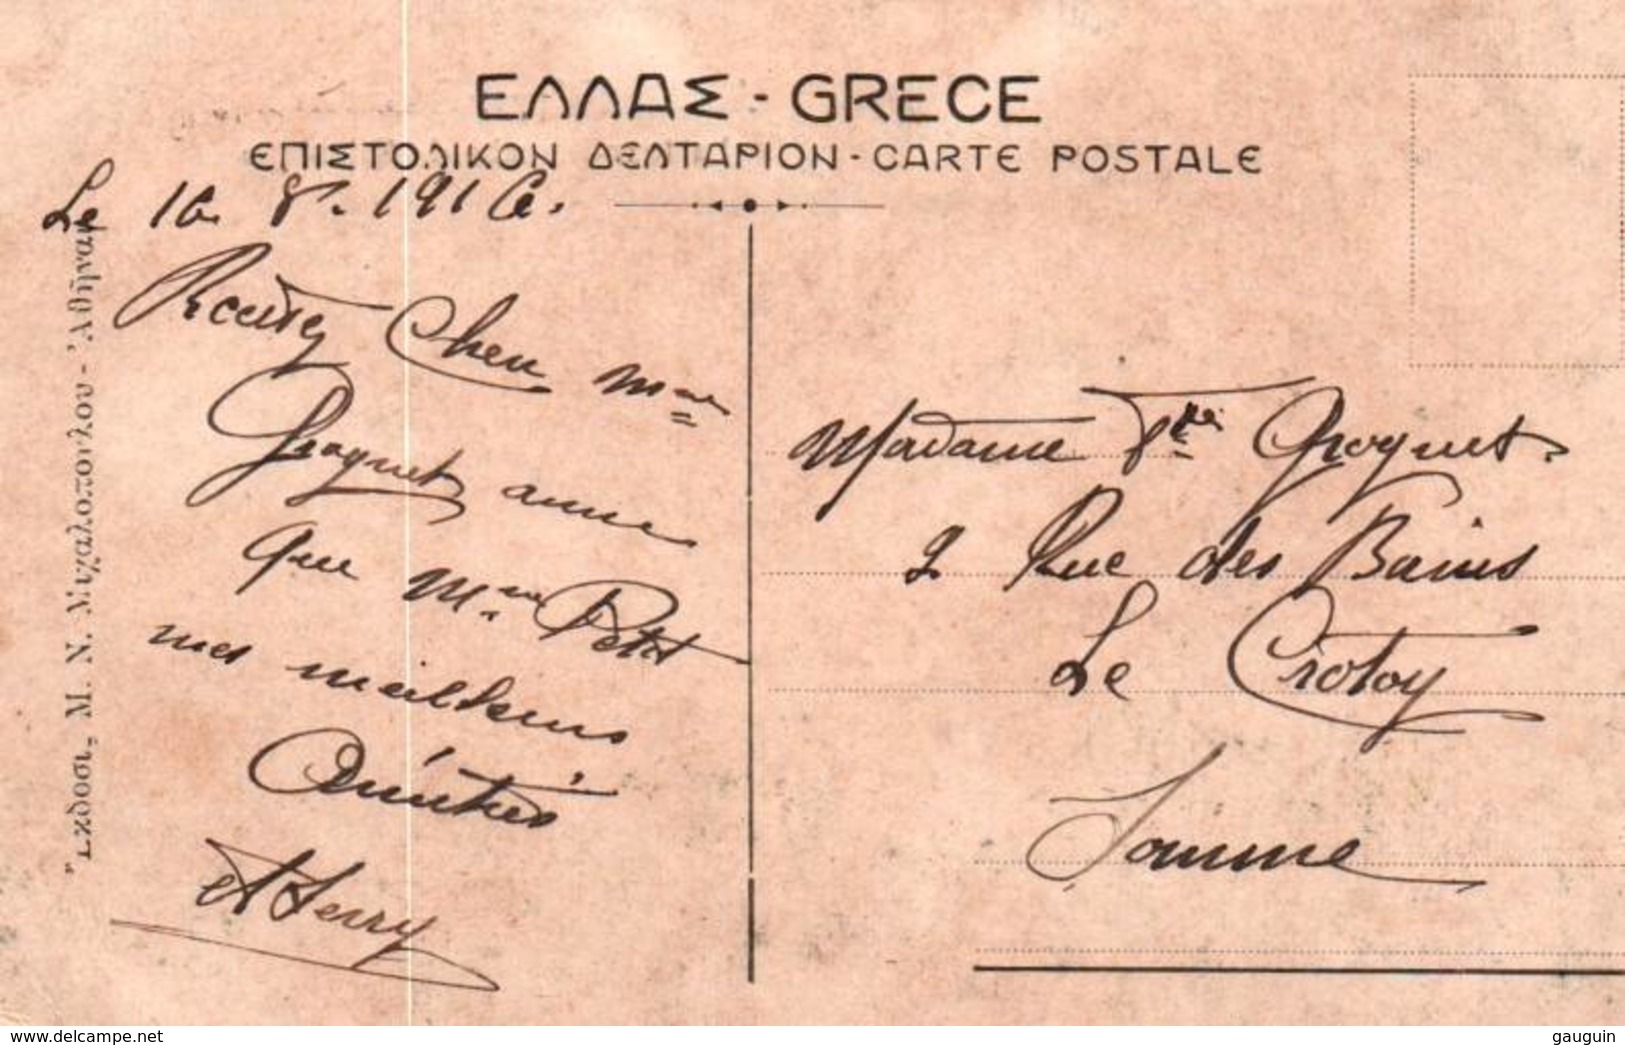 ΕΛΛΑΣ - GRECE
ΕΠΙΣΤΟΛΙΚΟΝ ΔΕΛΤΑΡΙΟΝ - CARTE POSTALE
Le 16. 8. 1916.
Recevez Cher Mme
Groguet ainsi
que Mme Petit
mes meilleurs
Amitiés
A Ferry
Madame Vve Groguet
2 Rue des Bains
Le Crotoy
Somme
Ἔκδοσι, Μ. Ν. Μιχαλοπούλου - Ἀθῆναι
delcampe.net
gauguin